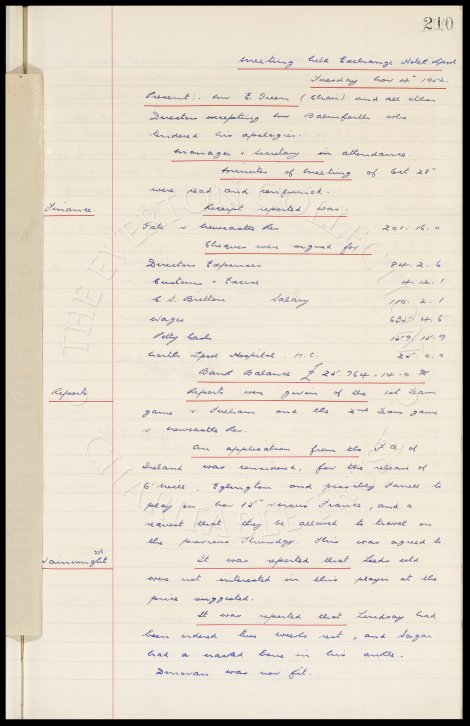 210
Meeting held Exchange Hotel Lpool
Tuesday Nov 4th 1952.
Present:- Mr E. Green (Chair) and all other
Directors excepting Mr Balmforth who
tendered his apologies.
Manager & Secretary in attendance.
Minutes of Meeting of Oct 28th
were read and confirmed.
Finance. Receipt reported was:-
Gate v Newcastle Res 201. 16. 0
Cheques were signed for
Directors Expenses 84. 2. 6
Customs & Excise 4. 12. 1
C. S. Britton Salary 110. 2. 1
Wages 635. 4. 6
Petty Cash 159. 15. 9
North Lpool Hospital. 25. 0. 0
Bank Balance £ 25.764. 14. 0
Reports Reports were given of the 1st Team
game v Fulham and the 2nd Team game
v Newcastle Res.
An application from the F.A. of
Ireland was considered, for the release of
O'Neill, Eglington and possibly Farrell to
play on Nov 15th versus France, and a
request that they be allowed to travel on
the previous Thursday. This was agreed to.
Wainwright 209 It was reported that Leeds Utd
were not interested in this player at the
price suggested.
It was reported that Lindsay had
been ordered two weeks rest, and Sagar
had a cracked bone in his ankle.
Donovan was now fit.
THE EVERTON COLLECTION
CHARITABLE TRUST